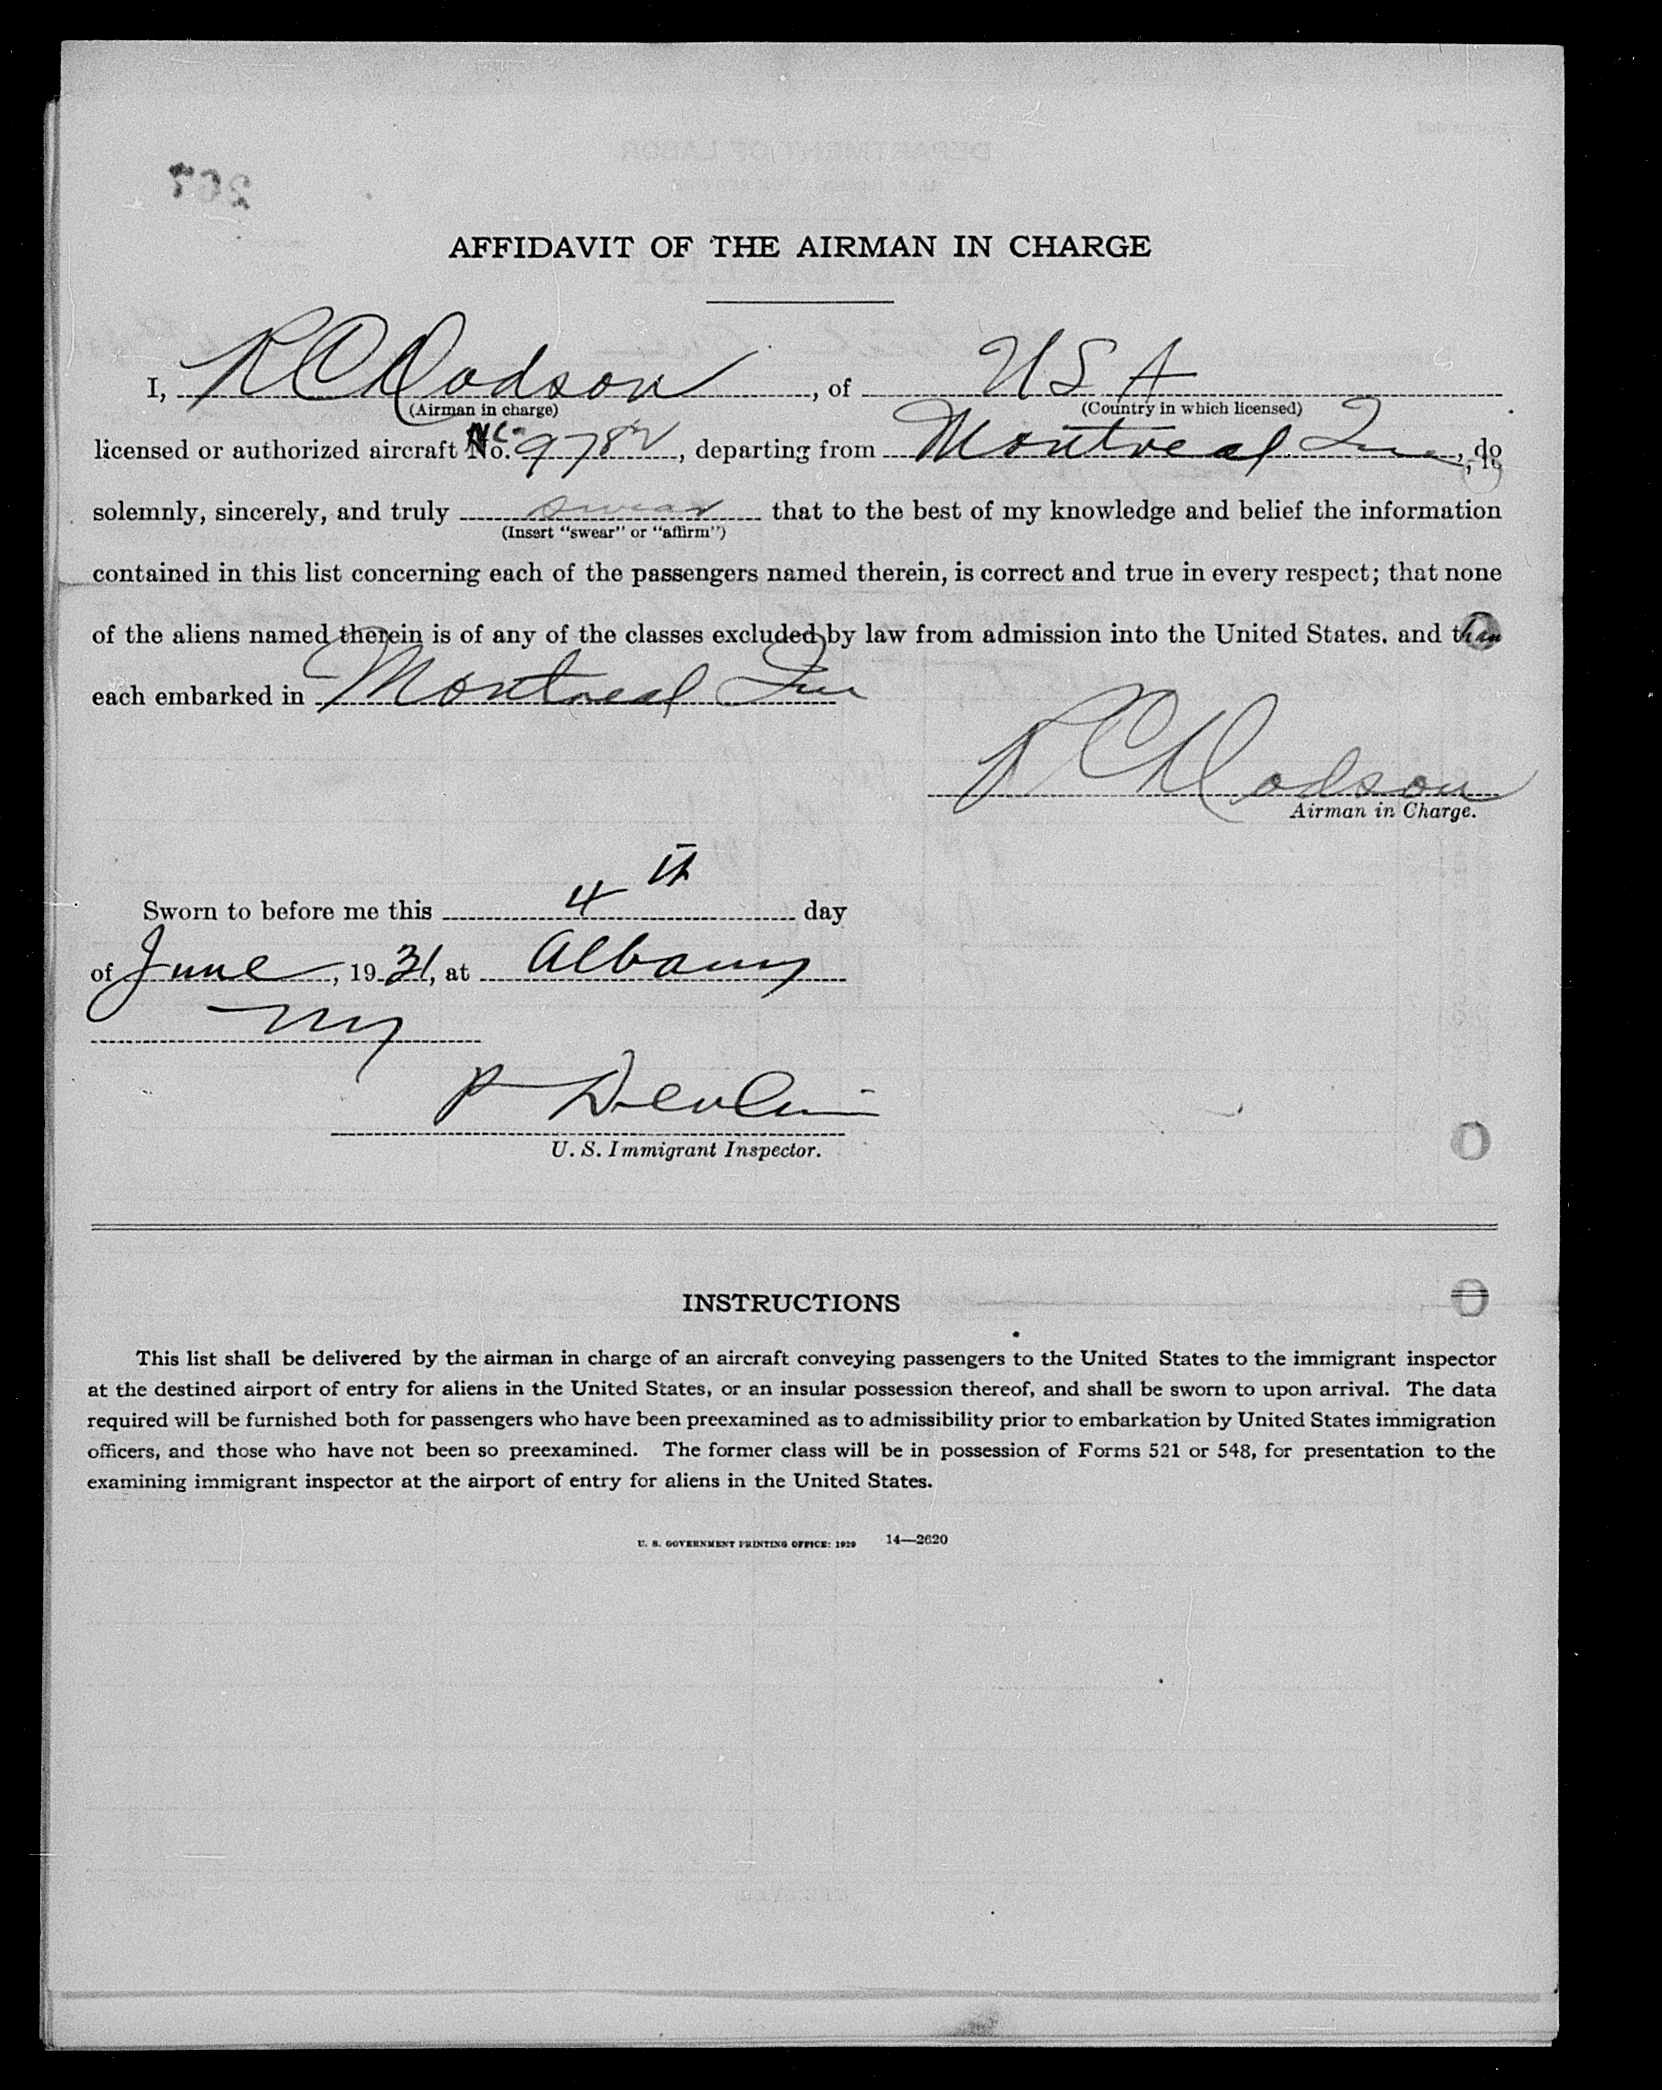 AFFIDAVIT OF THE AIRMAN IN CHARGE
I, R C Dodson, of USA
(Airman in charge) (Country in which licensed)
licensed or authorized aircraft No. NC-978, departing from Montreal Que, do
solemnly, sincerely, and truly swear that to the best of my knowledge and belief the information
(Insert "swear" or "affirm")
contained in this list concerning each of the passengers named therein, is correct and true in every respect; that none
of the aliens named therein is of any of the classes excluded by law from admission into the United States. and
each embarked in Montreal Que
R C Dodson
Airman in Charge.
Sworn to before me this 4th day
of June, 1931, at Albany
NY
P Devlin
U. S. Immigrant Inspector.
INSTRUCTIONS
This list shall be delivered by the airman in charge of an aircraft conveying passengers to the United States to the immigrant inspector
at the destined airport of entry for aliens in the United States, or an insular possession thereof, and shall be sworn to upon arrival. The data
required will be furnished both for passengers who have been preexamined as to admissibility prior to embarkation by United States immigration
officers, and those who have not been so preexamined. The former class will be in possession of Forms 521 or 548, for presentation to the
examining immigrant inspector at the airport of entry for aliens in the United States.
U. S. GOVERNMENT PRINTING OFFICE: 1929 14—2620